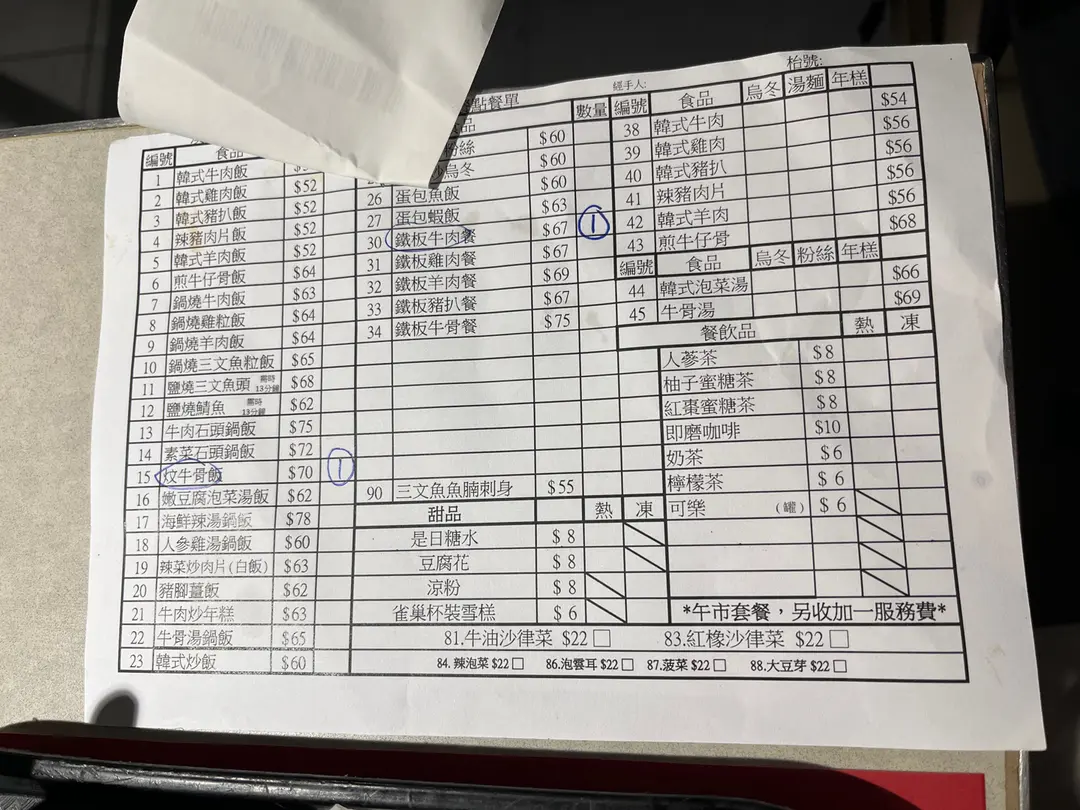 枱號:
經手人:
點餐單
編號 食品
1 韓式牛肉飯
2 韓式雞肉飯 $52
3 韓式豬扒飯 $52
4 辣豬肉片飯 $52
5 韓式羊肉飯 $52
6 煎牛仔骨飯 $64
7 鍋燒牛肉飯 $63
8 鍋燒雞粒飯 $64
9 鍋燒羊肉飯 $64
10 鍋燒三文魚粒飯 $65
11 鹽燒三文魚頭 需時13分鐘 $68
12 鹽燒鯖魚 需時13分鐘 $62
13 牛肉石頭鍋飯 $75
14 素菜石頭鍋飯 $72
15 炆牛骨飯 $70 1
16 嫩豆腐泡菜湯飯 $62
17 海鮮辣湯鍋飯 $78
18 人參雞湯鍋飯 $60
19 辣菜炒肉片(白飯) $63
20 豬腳薑飯 $62
21 牛肉炒年糕 $63
22 牛骨湯鍋飯 $65
23 韓式炒飯 $60
品 數量
粉絲 $60
烏冬 $60
26 蛋包魚飯 $60
27 蛋包蝦飯 $63
30 鐵板牛肉餐 $67 1
31 鐵板雞肉餐 $67
32 鐵板羊肉餐 $69
33 鐵板豬扒餐 $67
34 鐵板牛骨餐 $75
90 三文魚魚腩刺身 $55
甜品 熱 凍
是日糖水 $8
豆腐花 $8
涼粉 $8
雀巢杯裝雪糕 $6
編號 食品 烏冬 湯麵 年糕
38 韓式牛肉 $54
39 韓式雞肉 $56
40 韓式豬扒 $56
41 辣豬肉片 $56
42 韓式羊肉 $56
43 煎牛仔骨 $68
編號 食品 烏冬 粉絲 年糕
44 韓式泡菜湯 $66
45 牛骨湯 $69
餐飲品 熱 凍
人蔘茶 $8
柚子蜜糖茶 $8
紅棗蜜糖茶 $8
即磨咖啡 $10
奶茶 $6
檸檬茶 $6
可樂 (罐) $6
*午市套餐，另收加一服務費*
81.牛油沙律菜 $22 □ 83.紅橡沙律菜 $22 □
84.辣泡菜 $22 □ 86.泡雲耳 $22 □ 87.菠菜 $22 □ 88.大豆芽 $22 □